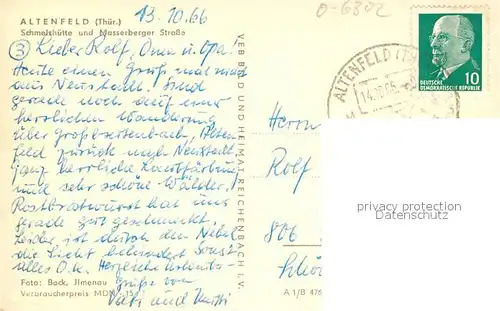 ALTENFELD (Thür.)
Schmelzhütte und Masserberger Straße
13.10.66
O-6302
③ Lieber Rolf, Oma u. Opa!
Heute einen Gruß mal nicht
aus Neustadt! Sind
gerade noch auf einer
herrlichen Wanderung
über Großbreitenbach, Alten-
feld zurück nach Neustadt
ganz herrliche Laubfärbung
und sehr schöne Wälder,
Rostbratwürst hat uns
gerade gut geschmeckt.
Leider ist durch den Nebel
die Sicht behindert Sonst
alles O.K. Herzliche Urlaubs-
Grüße von
Vati und Mutti
Foto: Bock, Jlmenau
Verbraucherpreis MDN
VEB BILD UND HEIMAT REICHENBACH I. V.
A 1/B 476
ALTENFELD (TH
14.10.66
10
DEUTSCHE
DEMOKRATISCHE REPUBLIK
Herrn
Rolf
806
privacy protection
Datenschutz